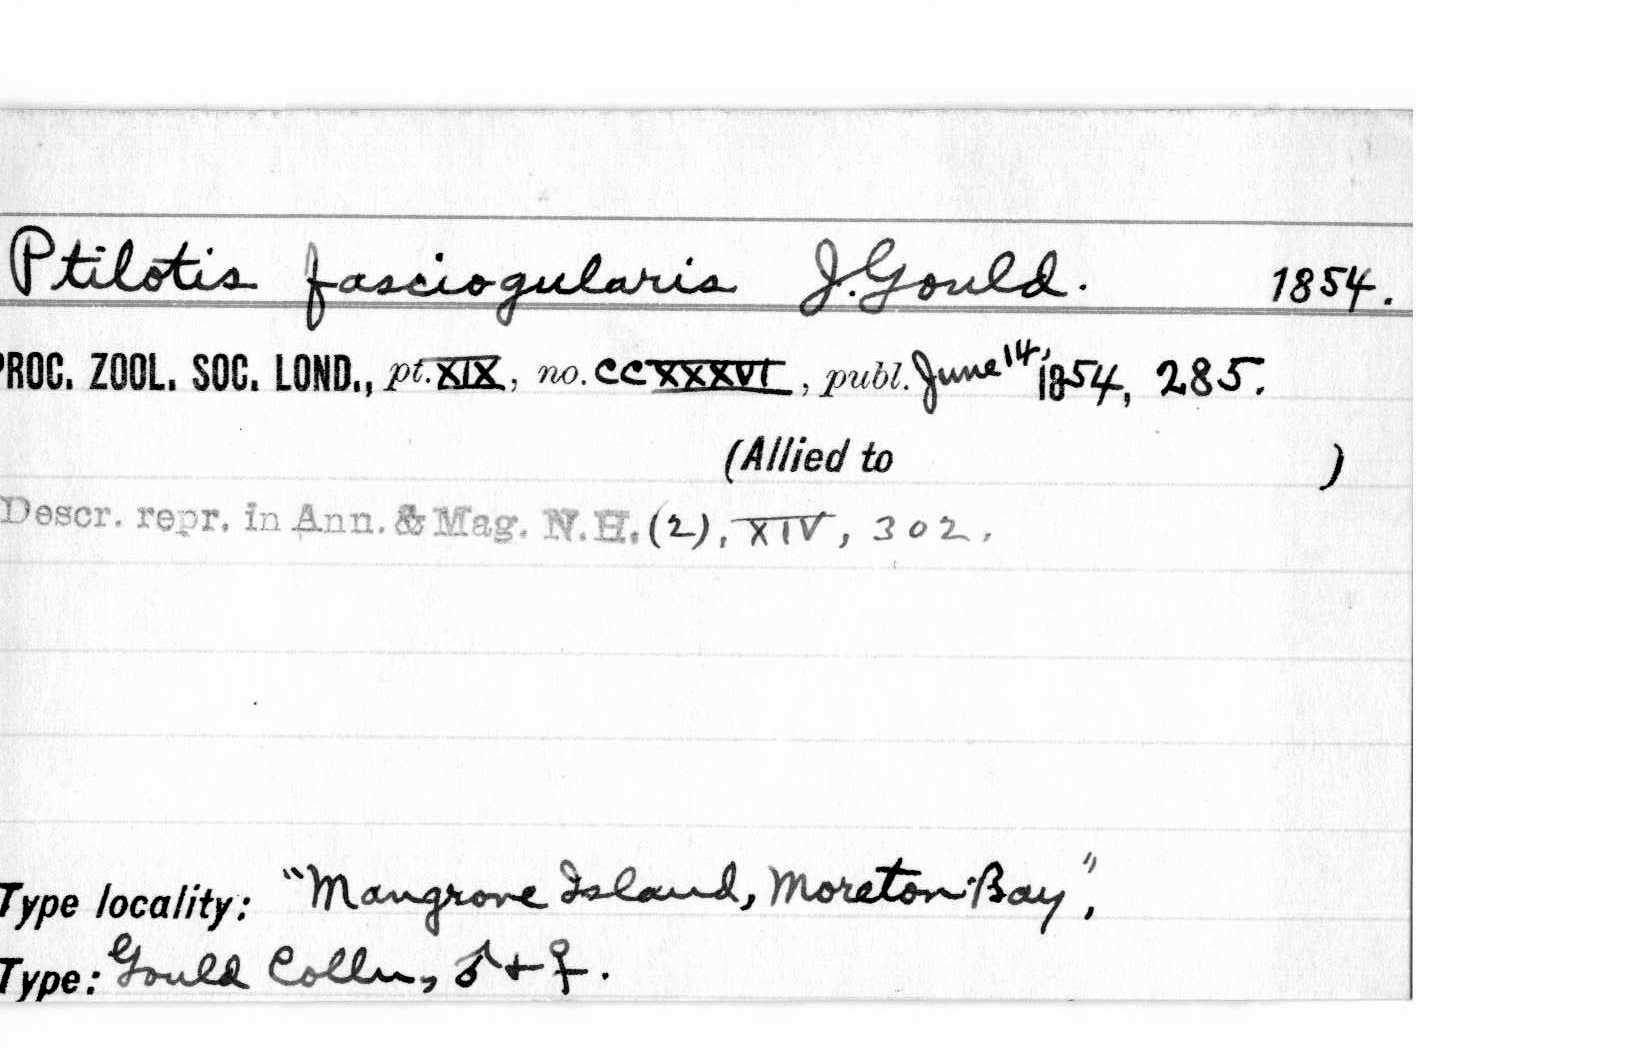 Ptilotis fasciogularis J. Gould. 1854.
PROC. ZOOL. SOC. LOND., pt. XIX, no. CCXXXVI, publ. June 14, 1854, 285.
(Allied to )
Descr. repr. in Ann. & Mag. N.H. (2), XIV, 302.
Type locality: "Mangrove Island, Moreton Bay",
Type: Gould Colln, ♂ + ♀.